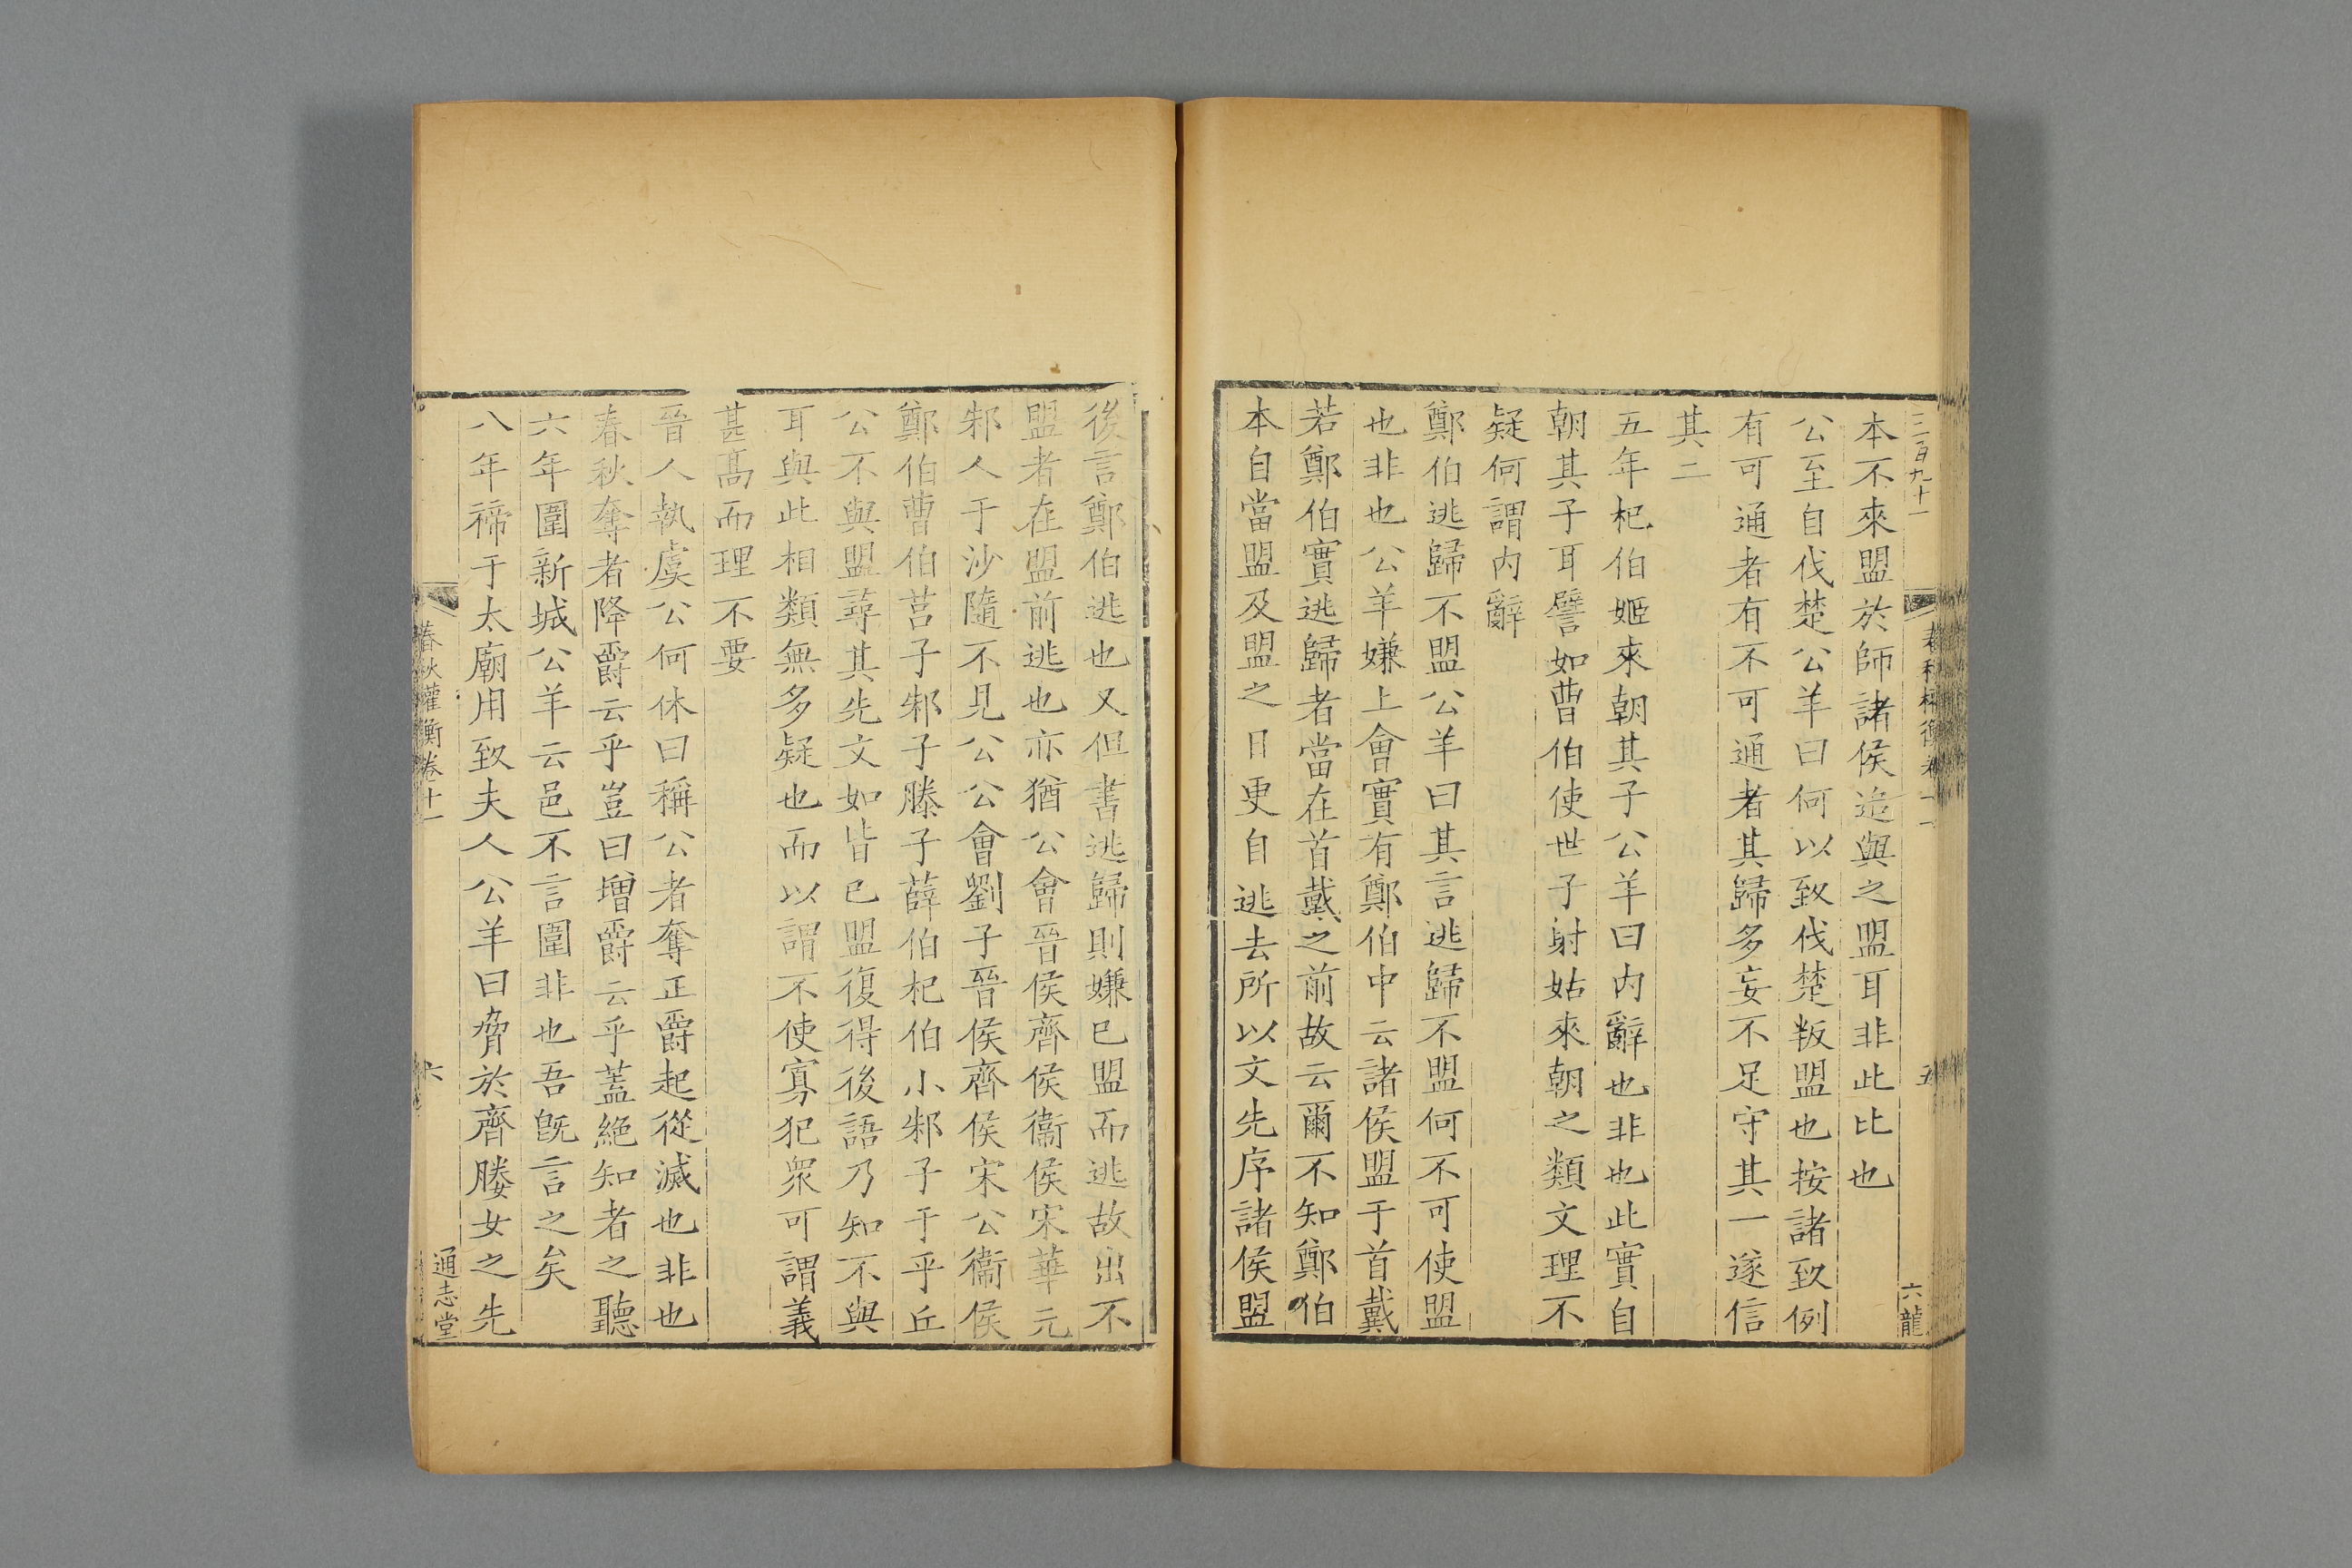 三百九十一
六龍
本不來盟於師諸侯追與之盟耳非此比也
公至自伐楚公羊曰何以致伐楚叛盟也按諸致例
有可通者有不可通者其歸多妄不足守其一遂信
其二
五年杞伯姬來朝其子公羊曰内辭也非也此實自
朝其子耳譬如曹伯使世子射姑來朝之類文理不
疑何謂内辭
鄭伯逃歸不盟公羊曰其言逃歸不盟何不可使盟
也非也公羊嫌上會實有鄭伯中云諸侯盟于首戴
若鄭伯實逃歸者當在首戴之前故云爾不知鄭伯
本自當盟及盟之日更自逃去所以文先序諸侯盟
後言鄭伯逃也又但書逃歸則嫌已盟而逃故出不
盟者在盟前逃也亦猶公會晉侯齊侯衞侯宋華元
邾人于沙隨不見公公會劉子晉侯齊侯宋公衞侯
鄭伯曹伯莒子邾子滕子薛伯杞伯小邾子于平丘
公不與盟蕁其先文如皆已盟復得後語乃知不與
耳與此相類無多疑也而以謂不使寡犯衆可謂義
甚髙而理不要
晉人執虞公何休曰稱公者奪正爵起從滅也非也
春秋奪者降爵云乎豈曰增爵云乎蓋絶知者之聽
六年圍新城公羊云邑不言圍非也吾旣言之矣
八年禘于太廟用致夫人公羊曰脅於齊媵女之先
春秋權衡卷十一
六
通志堂